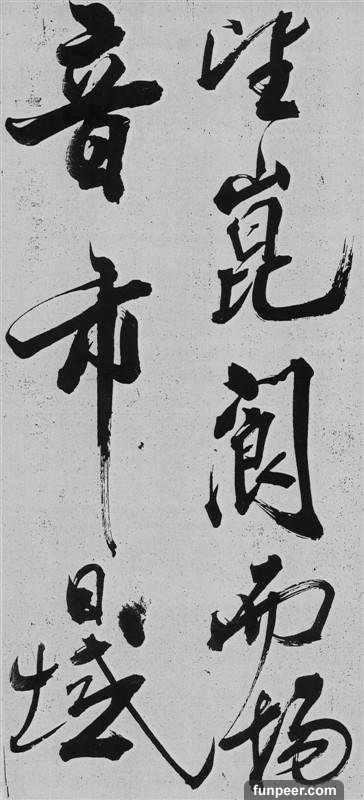 望崑閬而揚
音帀日域
funpeer.com